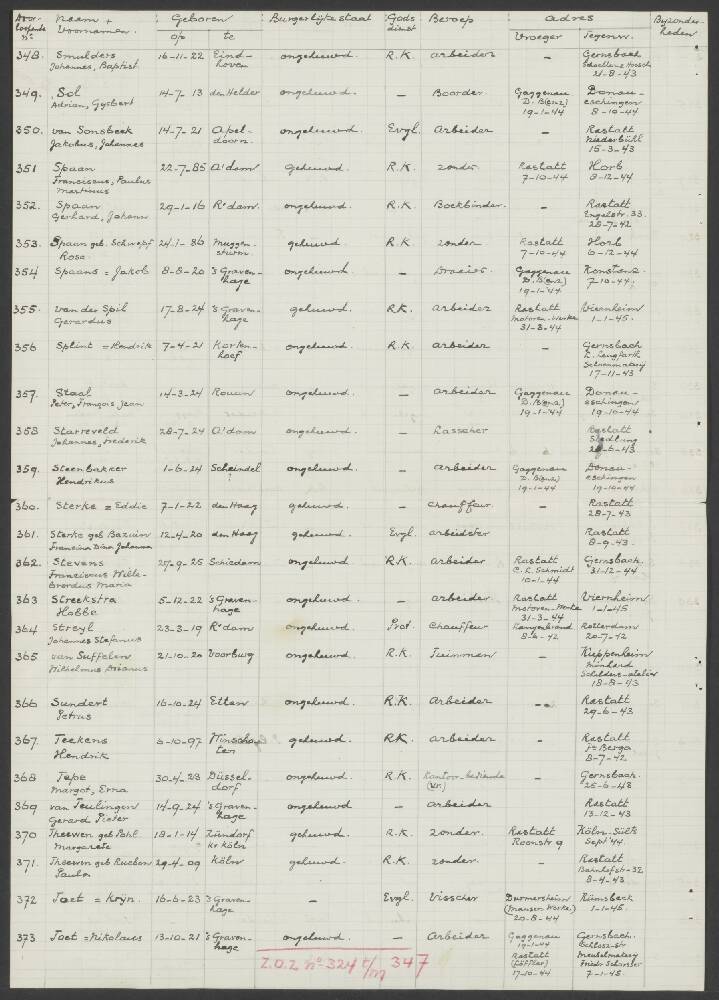 Door-loopende nº. Naam + Voornamen. Geboren op te Burgerlijke staat Godsdienst Beroep Adres Vroeger Tegenw. Bijzonderheden
348. Smulders 16-11-22 Eind- ongehuwd. R.K. arbeider - Gernsbach
Johannes, Baptist hoven
21-8-43
349. Sol 14-7-13 den Helder ongehuwd. - Boorder. Gaggenau Donau-
Adrian, Gysbert D. B(enz) eschingen
19-1-44 8-10-44
350. van Sonsbeek 14-7-21 Apel- ongehuwd. Evgl. Arbeider - Rastatt
Jakobus, Johannes doorn. Niederbühl
15-3-43
351 Spaan 22-7-85 A'dam gehuwd. R.K. zonder. Rastatt Horb
Franciscus, Paulus 7-10-44 8-12-44
Martinus
352. Spaan 29-1-16 R'dam. ongehuwd. R.K. Boekbinder. - Rastatt
Gerhard, Johann Engelstr. 33.
28-7-42
353. Spaan geb. Schwepf 24-1-86 Muggen- gehuwd. R.K zonder Rastatt Horb
Rosa. sturm 7-10-44 6-12-44
354 Spaans = Jakob 8-8-20 's Graven- ongehuwd - Draaier. Gaggenau Konstanz.
hage D. B(enz) 7-10-44.
19-1-44
355. van der Spil 17-8-24 's Graven- gehuwd. R.K. arbeider Rastatt Viernheim
Gerardus hage Motoren-Werke 1-1-45.
31-3-44
356 Splint = Hendrik 7-4-21 Korten- ongehuwd. R.K. arbeider - Gernsbach
hoef L. Langfarth
17-11-43
357. Staal 14-3-24 Rouan ongehuwd. - arbeider Gaggenau Donau-
Peter, François Jean D. B(enz) eschingen
19-1-44 19-10-44
358 Starreveld 28-7-24 A'dam ongehuwd. - Lasscher Rastatt
Johannes, Frederik Siedlung
-6-43
359. Steenbakker 1-6-24 Schaindel ongehuwd. - arbeider Gaggenau Donau-
Hendrikus ! D. B(enz) eschingen
19-1-44 19-10-44
360. Sterke = Eddie 7-1-22 den Haag gehuwd. - chauffeur. - Rastatt
28-7-43
361. Sterke geb Bazuin 12-4-20 den Haag gehuwd. Evgl. arbeidster Rastatt
Francina Dina Johanna 8-9-43.
362. Stevens 27-9-25 Schiedam ongehuwd R.K. arbeider Rastatt Gernsbach.
Franciscus Wille- C. L. Schmidt 31-12-44.
brordus Maria 10-1-44
363 Streekstra 5-12-22 's Graven- ongehuwd. - arbeider Rastatt Viernheim
Hobbe hage Motoren-Werke 1-1-45
31-3-44
364 Streyl 23-3-19 R'dam ongehuwd. Prot. Chauffeur Langenbrand Rotterdam
Johannes Stefanus 8-6-42 20-7-42
365. van Suffelen 21-10-20 Voorburg ongehuwd. R.K. Tuinman - Kuppenheim
Wilhelmus Arianus
Schilders-atelier
18-8-43
366 Sundert 16-10-24 Etten ongehuwd. R.K. Arbeider - Rastatt
Petrus 29-6-43
367. Teekens 6-10-97 Winscho- gehuwd. RK. arbeider - Rastatt
Hendrik ten Berga
8-7-42
368 Tepe 30-4-23 Düssel- ongehuwd. R.K. Kantoor-bediende - Gernsbach.
Margot, Erna dorf (vr.) 25-6-43
369 van Teulingen 14-9-24 's Graven- ongehuwd - arbeider Rastatt
Gerard Pieter hage 13-12-43
370 Theewen geb Pohl 18-1-14 Zündorf gehuwd. R.K. zonder. Rastatt Köln-Sülz
Margarete kr Köln Roonstr 9 Sept '44.
371. Theewen geb Ruchen 29-4-09 Köln gehuwd. R.K. zonder. - Rastatt
Paula Bahnhofstr-32
8-4-43
372 Toet = Krijn. 16-6-23 's Graven- - Evgl. Visscher Durmersheim Rünsbeck
hage (Mauser Werke) 1-1-45.
20-8-44
373. Toet = Nikolaus 13-10-21 's Graven- ongehuwd. - Arbeider Gaggenau Gernsbach.
hage 19-1-44 Schlosstr
Rastatt
(Löffler) Friedr Schiesser
17-10-44 7-1-45.
Z.O.Z. nº 324 t/m 347